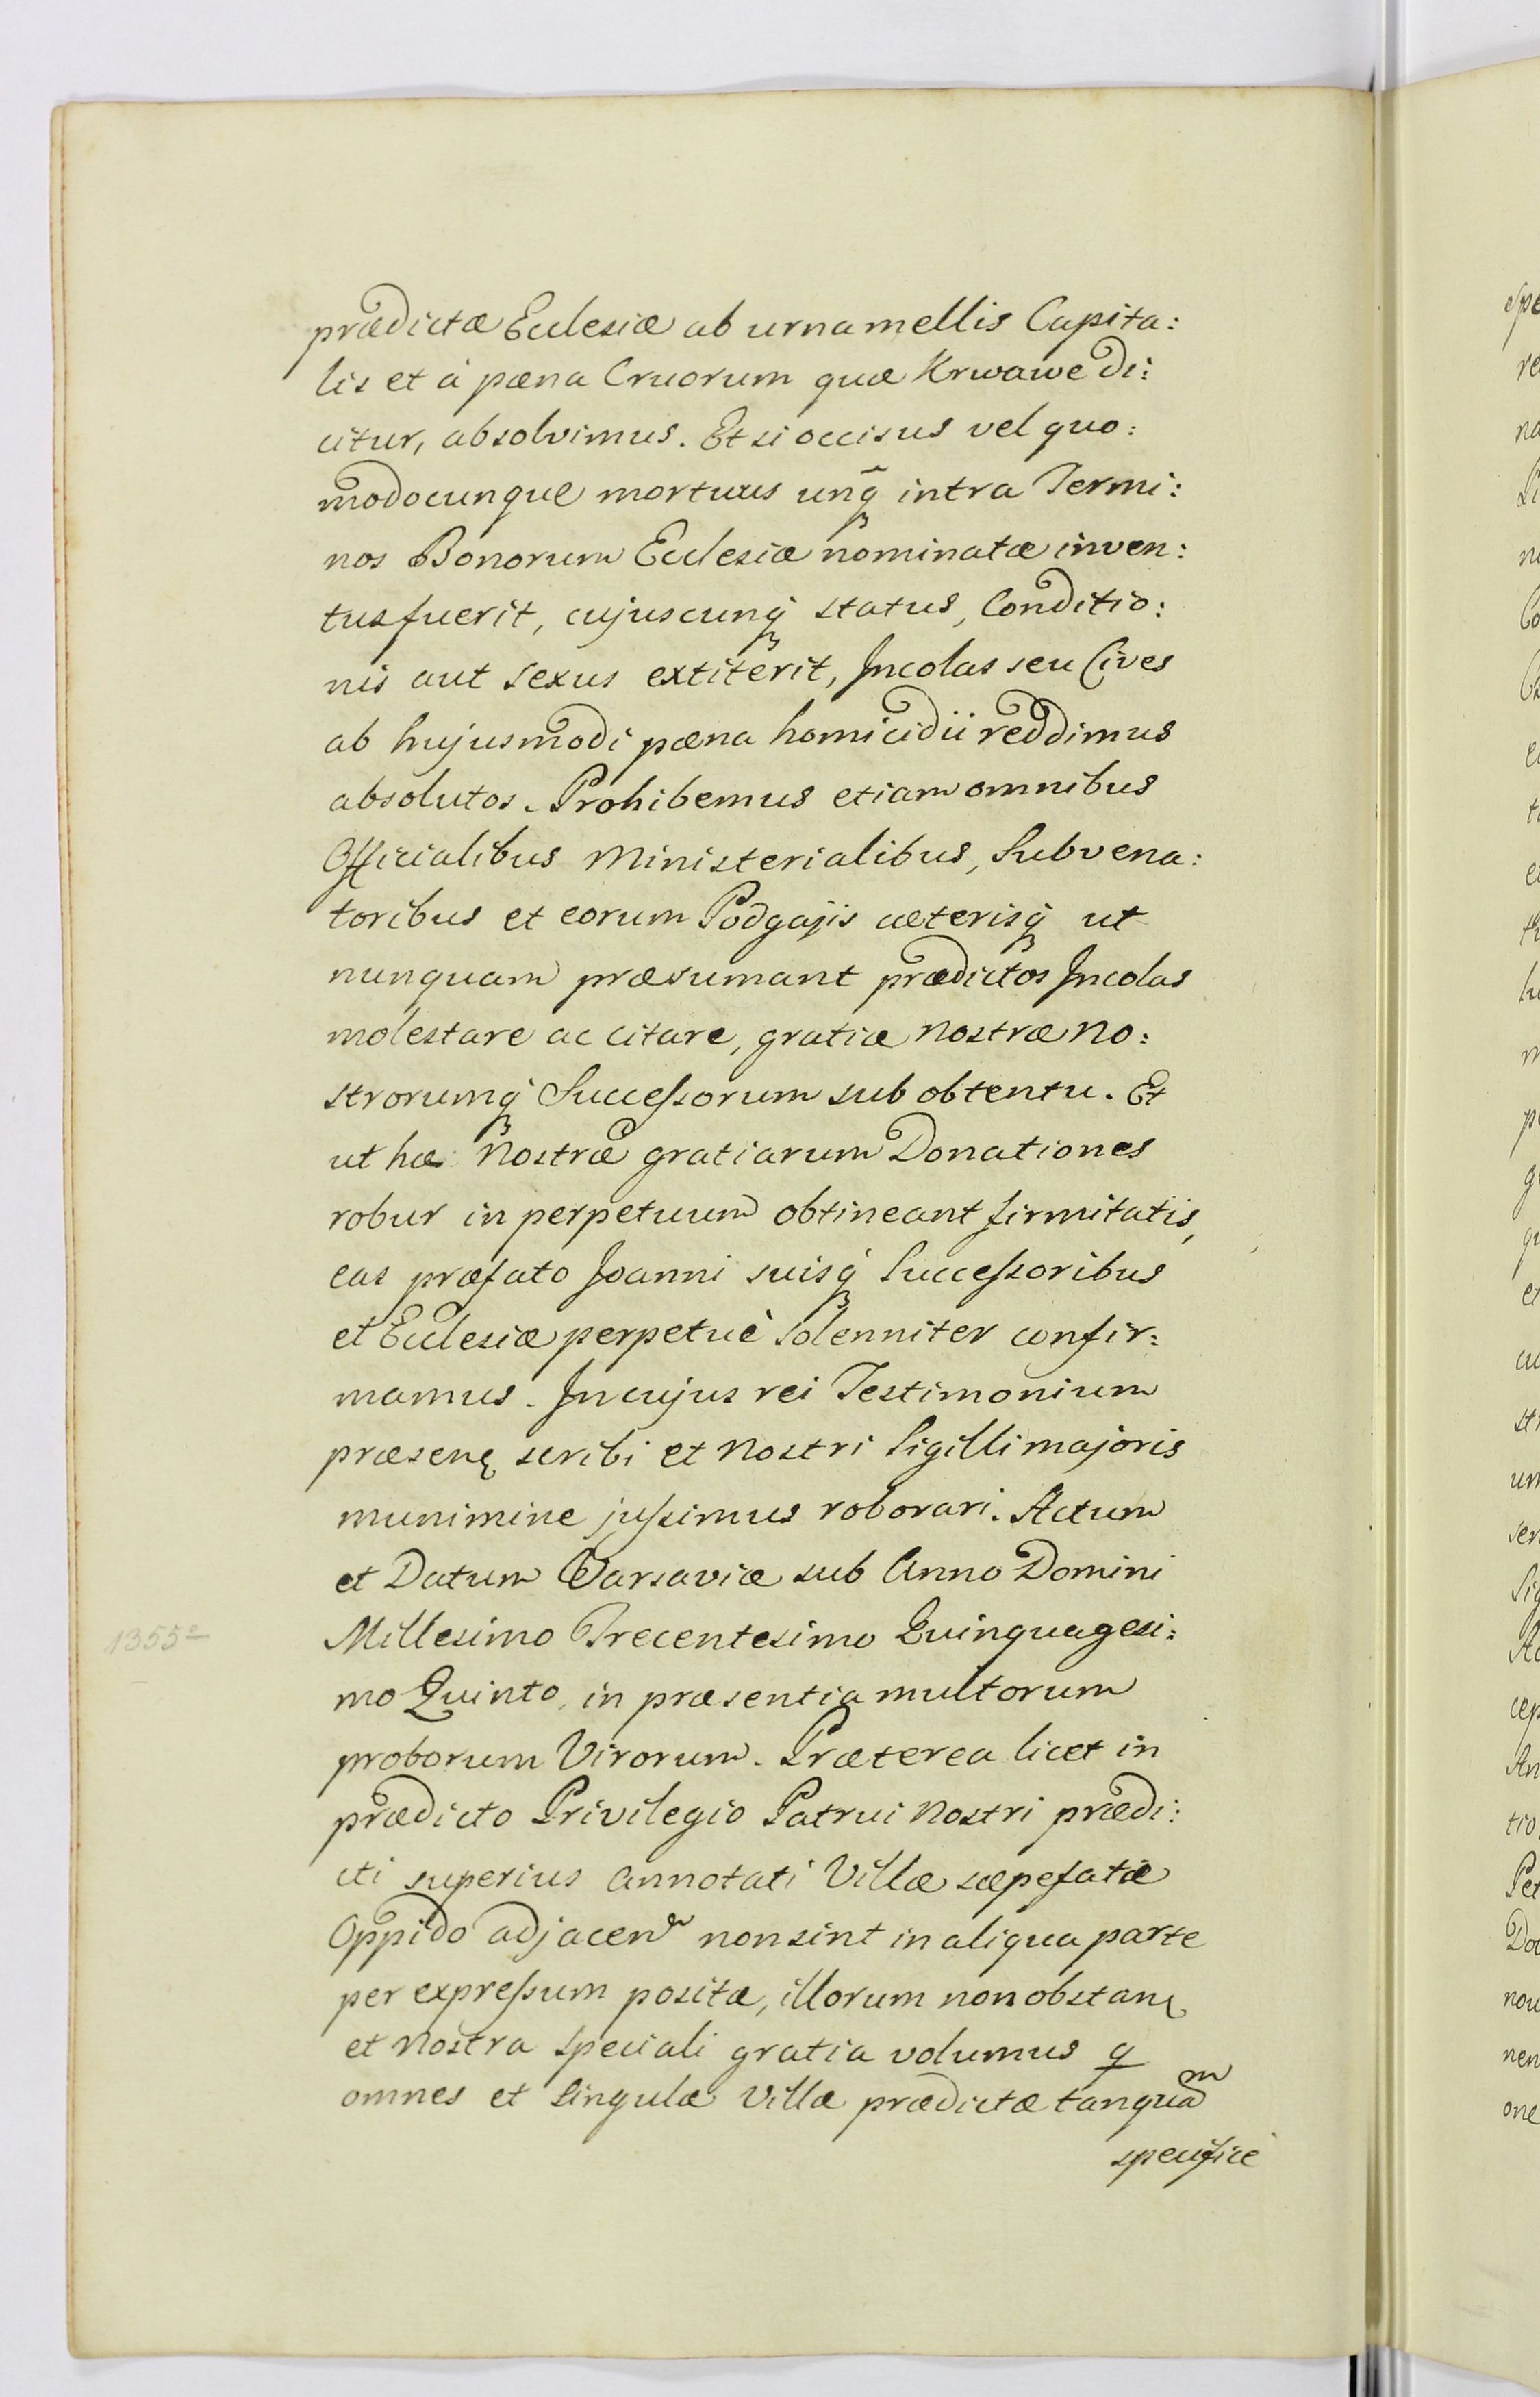 prædictæ Ecclesiæ ab urna mellis Capita:
lis et à pæna Cruorum quæ Krwawe di:
citur, absolvimus. Et si occisus vel quo:
modocunque mortuus unq̃ intra Termi:
nos Bonorum Ecclesiæ nominatæ inven:
tus fuerit, cujuscunq́ status, Conditio:
nis aut sexus extiterit, Incolas seu Cives
ab hujusmodi pæna homicidii reddimus
absolutos. Prohibemus etiam omnibus
Officialibus Ministerialibus, Subvena:
toribus et eorum Podgajis cæterisq́ ut
nunquam præsumant prædictos Incolas
molestare ac citare, gratiæ nostræ no:
strorumq́ Successorum sub obtentu. Et
ut hæ Nostræ gratiarum Donationes
robur in perpetuum obtineant firmitatis,
eas præfato Joanni suisq́ Successoribus
et Ecclesiæ perpetuè solenniter confir:
mamus. In cujus rei Testimonium
præsenę scribi et Nostri Sigilli majoris
munimine jussimus roborari. Actum
et Datum Varsaviæ sub Anno Domini
1355º
Millesimo Trecentesimo Quinquagesi:
mo Quinto, in præsentia multorum
proborum Virorum. Præterea licet in
prædicto Privilegio Patrui Nostri prædi:
cti superius annotati Villæ sæpefatæ
Oppido adjacen non sint in aliqua parte
per expressum positæ, illorum non obstanę
et Nostra speciali gratia volumus q
omnes et singulæ Villæ prædictæ tanquam
specifice